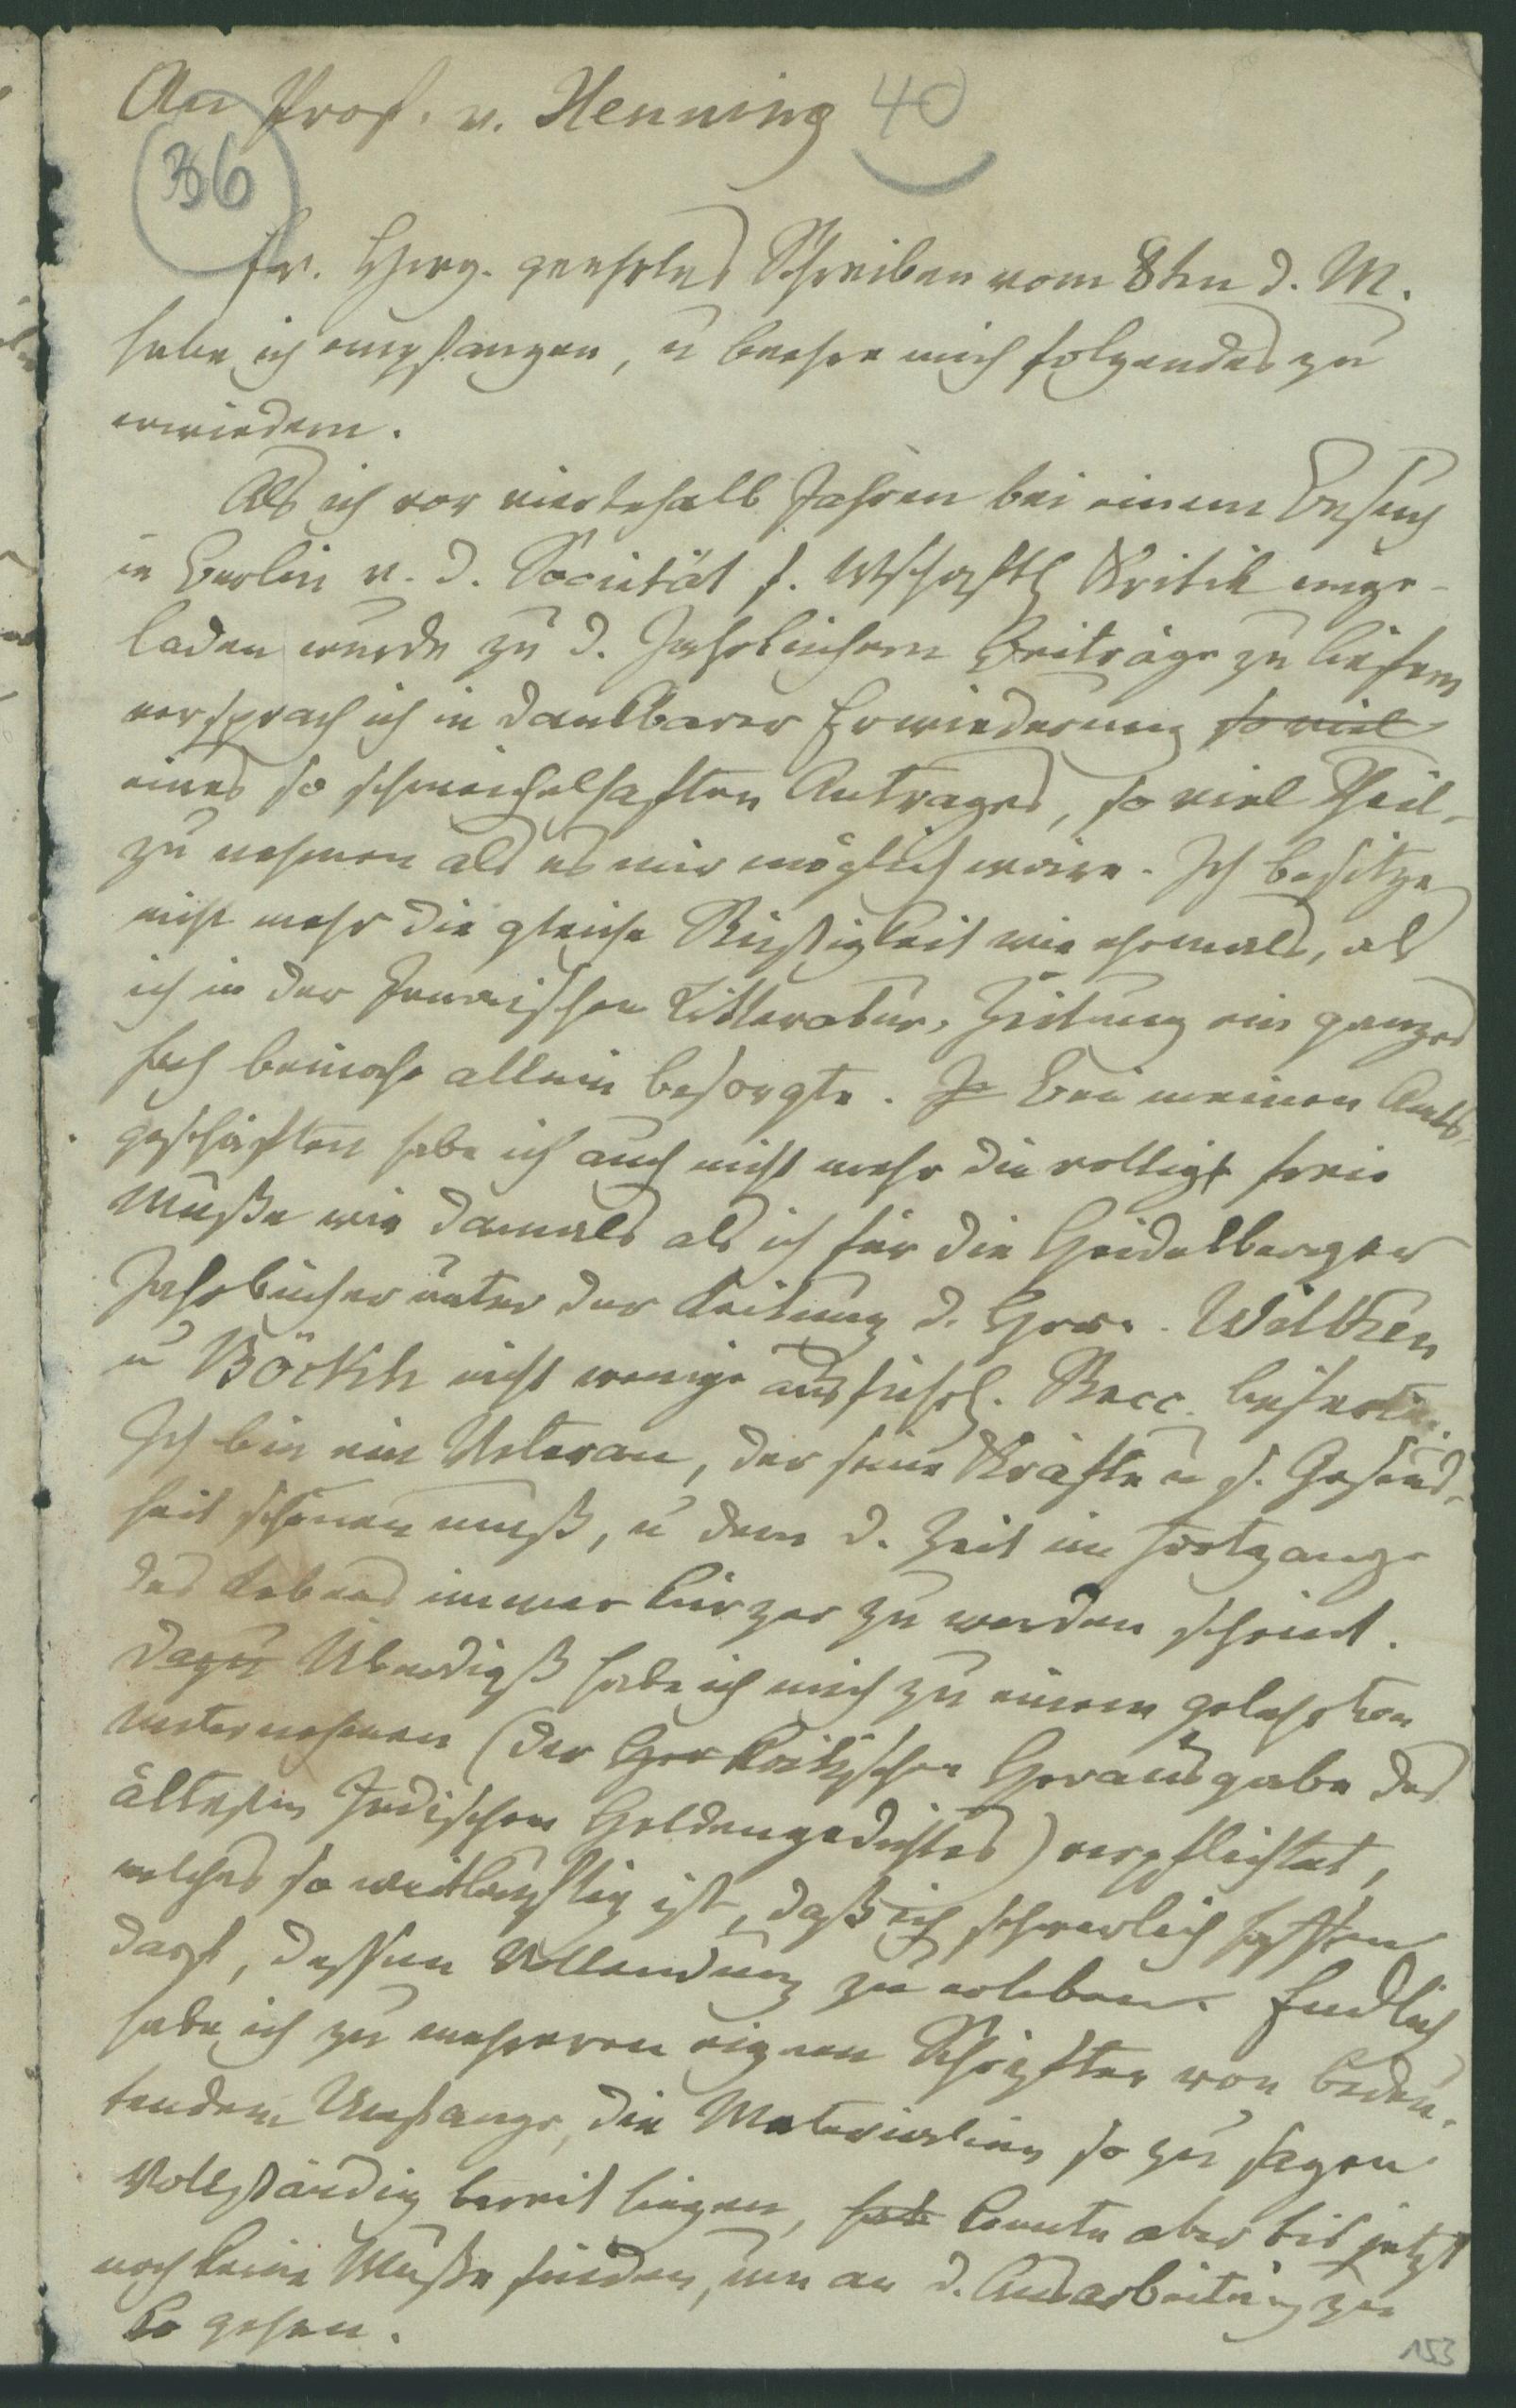 An Prof. v. Henning
40
36
Ew. Hwg. geehrtes Schreiben vom 8ten d. M.
habe ich empfangen, u beehre mich folgendes zu
erwiedern.
Als ich vor viertehalb Jahren bei einem Besuch
in Berlin v. d. Societät f. Wschaftl Kritik einge-
laden wurde zu d. Jahrbüchern Beiträge zu liefern
versprach ich in dankbarer Erwiederung so viel
eines so schmeichelhaften Antrages, so viel Theil
zu nehmen als es mir möglich wäre. Ich besitze
nicht mehr die gleiche Rüstigkeit wie ehemals, als
ich in der Jenaischen Litteratur-Zeitung ein ganzes
Fach beinahe allein besorgte. Bei meinen Amts-
geschäften habe ich auch nicht mehr die völlig freie
Muße wie damals als ich für die Heidelberger
Jahrbücher unter der Leitung d. Herrn Wilken
u Böckh nicht wenige ausführl. Recc. lieferte.
Ich bin ein Veteran, der seine Kräfte u s. Gesund-
heit schonen muß, u dem d. Zeit im Fortgange
des Lebens immer kürzer zu werden scheint.
dazu Überdieß habe ich mich zu einem gelehrten
Unternehmen (der Her kritischen Herausgabe des
ältesten Indischen Heldengedichtes) verpflichtet,
welches so weitläuftig ist, daß ich schwerlich hoffen
darf, dessen Vollendung zu erleben. Endlich
habe ich zu mehreren eignen Schriften von bedeu-
tendem Umfange, die Materialien so zu sagen
vollständig bereit liegen, hab konnte aber bis jetzt
noch keine Muße finden, um an d. Ausarbeitung zu
gehen.
153